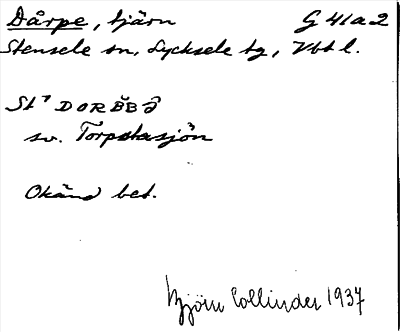 Dårpe, tjärn G 41a2
Stensele sn, Lycksele tg, Vbtl.
St⁷ DORB̆BƏ̂
sv. Torpstasjön
Okänd bet.
Björn Collinder 1937